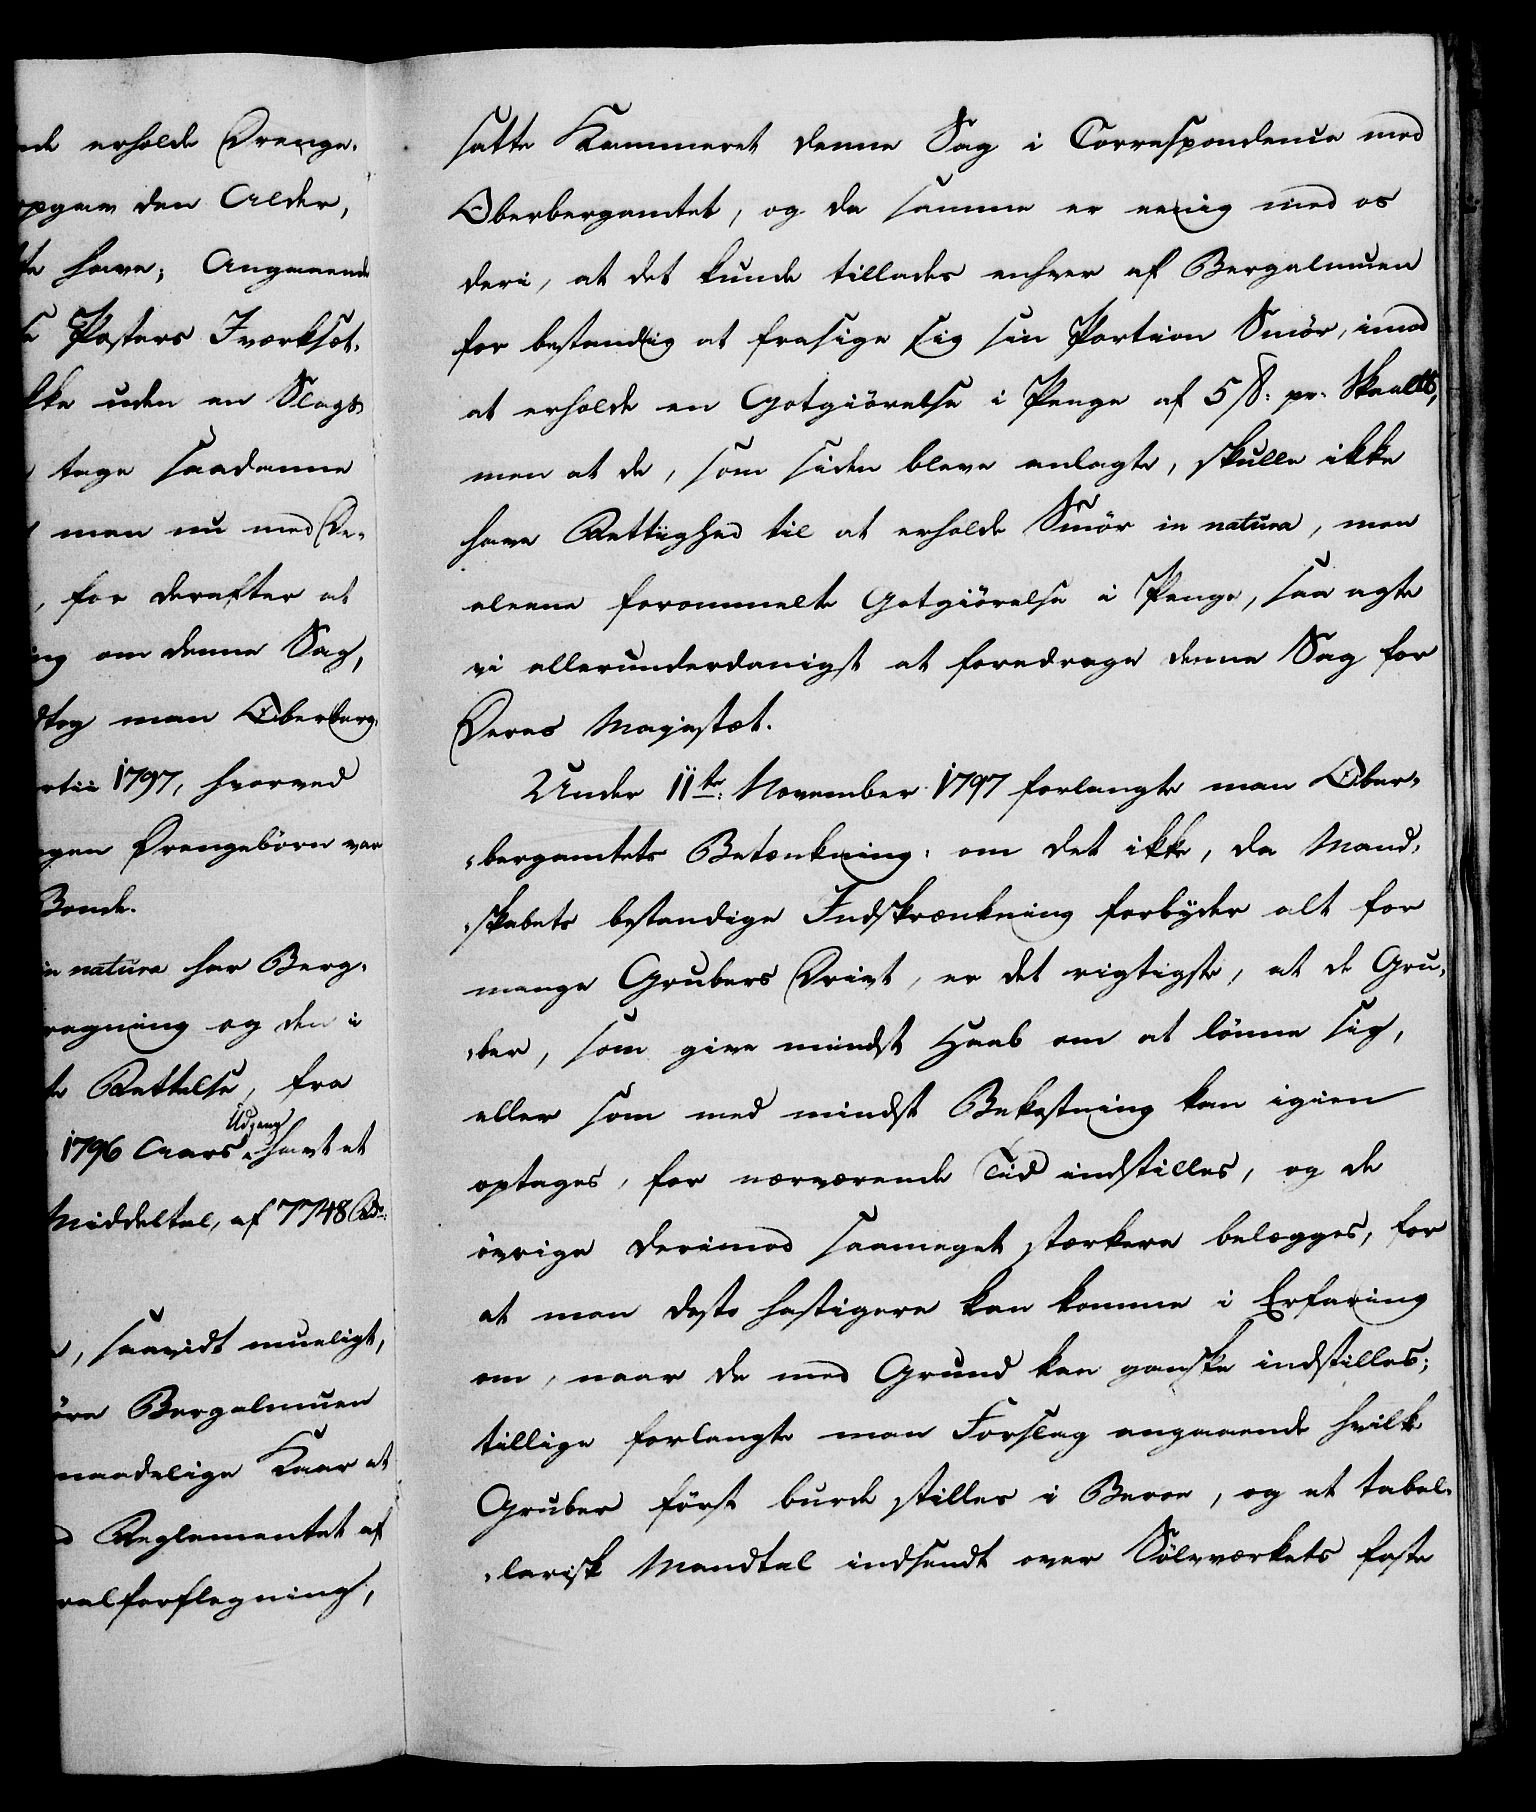 de erholde Drenge-
opgav den Alder,
te have; Angaaende
e Posters Iværksæt-
kke uden en Slags
tage saadanne
man nu med De-
, for derefter at
ing om denne Sag,
dtog man Oberberg-
rtii 1797, hvorved
gen Drengebörn var
Bonde.
in natura har Berg-
regning og den i
te Rettelse, fra
1796 Aars Udgang havt et
Middeltal, af 7748 Rdr:
, saavidt mueligt,
öre Bergalmuen
naadelige Kaar at
d Reglementet af
ralforflegning,
satte Kammeret denne Sag i Correspondence med
Oberbergamtet, og da samme er eenig med os
deri, at det kunde tillades enhver af Bergalmuen
for bestandig at frasige sig sin Portion Smör, imod
at erholde en Gotgiörelse i Penge af 5 ß. pr. Skaal℔,
men at de, som siden bleve anlagte, skulle ikke
have Rettighed til at erholde Smör in natura, men
alene forommelte Gotgiörelse i Penge, saa agte
vi allerunderdanigst at foredrage denne Sag for
Deres Majestæt.
Under 11te November 1797 forlangte man Ober-
bergamtets Betænkning: om det ikke, da Mand-
skabets bestandige Indskrænkning forbyder alt for
mange Grubers Drivt, er det rigtigste, at de Gru-
ber, som give mindst Haab om at lönne sig,
eller som med mindst Bekostning kan igien
optages, for nærværende Tid indstilles, og de
övrige derimod saameget stærkere belægges, for
at man desto hastigere kan komme i Erfaring
om, naar de med Grund kan ganske indstilles;
tillige forlangte man Forslag angaaende hvilke
Gruber först burde stilles i Beroe, og et tabel-
larisk Mandtal indsendt over Sölvværkets faste